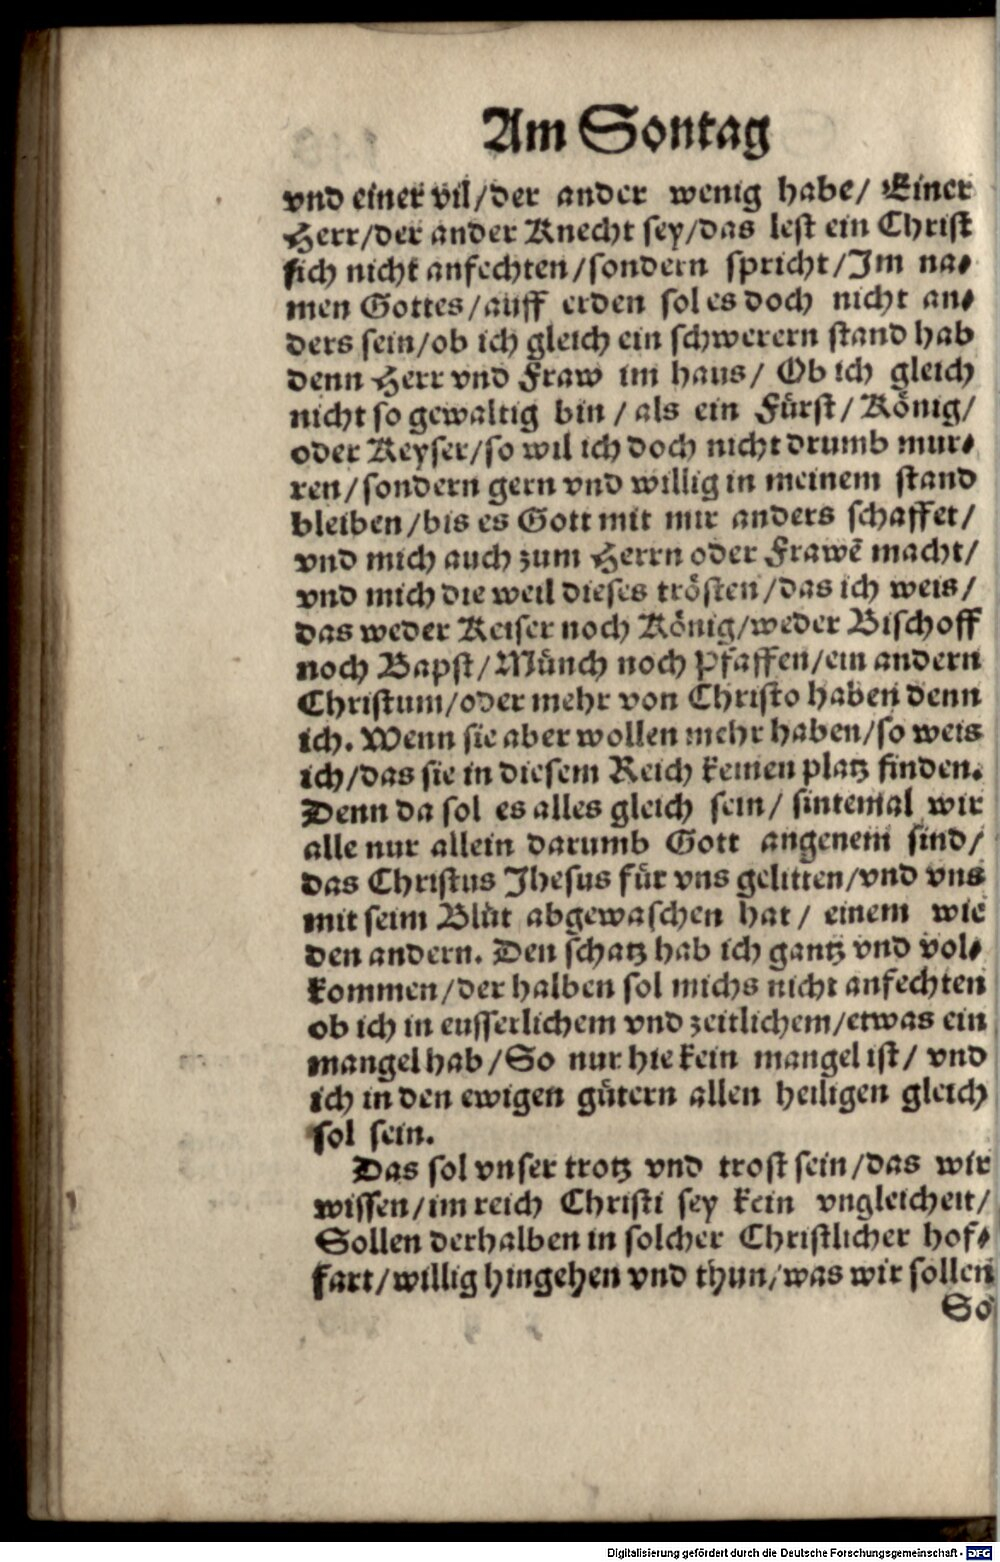 Am Sontag
vnd einer vil/der ander wenig habe/ Einer
Herr/der ander Knecht sey/das lest ein Christ
sich nicht anfechten/sondern spricht/Im na⸗
men Gottes/auff erden sol es doch nicht an⸗
ders sein/ob ich gleich ein schwerern stand hab
denn Herr vnd Fraw im haus/ Ob ich gleich
nicht so gewaltig bin/als ein Fürst/König/
oder Keyser/so wil ich doch nicht drumb mur⸗
ren/sondern gern vnd willig in meinem stand
bleiben/bis es Gott mit mir anders schaffet/
vnd mich auch zum Herrn oder Frawē macht/
vnd mich die weil dieses trösten/das ich weis/
das weder Keiser noch König/weder Bischoff
noch Bapst/Münch noch Pfaffen/ein andern
Christum/oder mehr von Christo haben denn
ich. Wenn sie aber wollen mehr haben/so weis
ich/das sie in diesem Reich keinen platz finden.
Denn da sol es alles gleich sein/ sintemal wir
alle nur allein darumb Gott angenem sind/
das Christus Jhesus für vns gelitten/vnd vns
mit seim Blůt abgewaschen hat/ einem wie
den andern. Den schatz hab ich gantz vnd vol⸗
kommen/der halben sol michs nicht anfechten
ob ich in eusserlichem vnd zeitlichem/etwas ein
mangel hab/So nur hie kein mangel ist/ vnd
ich in den ewigen gütern allen heiligen gleich
sol sein.
Das sol vnser trotz vnd trost sein/das wir
wissen/im reich Christi sey kein vngleicheit/
Sollen derhalben in solcher Christlicher hof⸗
fart/willig hingehen vnd thun/was wir sollen
So
Digitalisierung gefördert durch die Deutsche Forschungsgemeinschaft - DFG